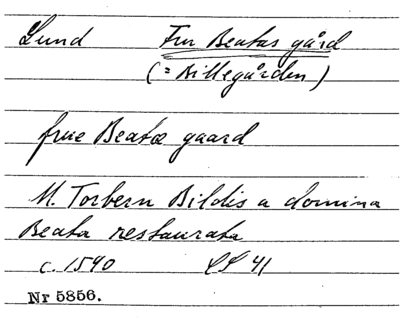 Lund Fru Beatas gård
(= Billegården)
frue Beatæ gaard
M. Torbern Bildis a domina
Beata restaurata
c. 1590 LS 41
Nr 5856.